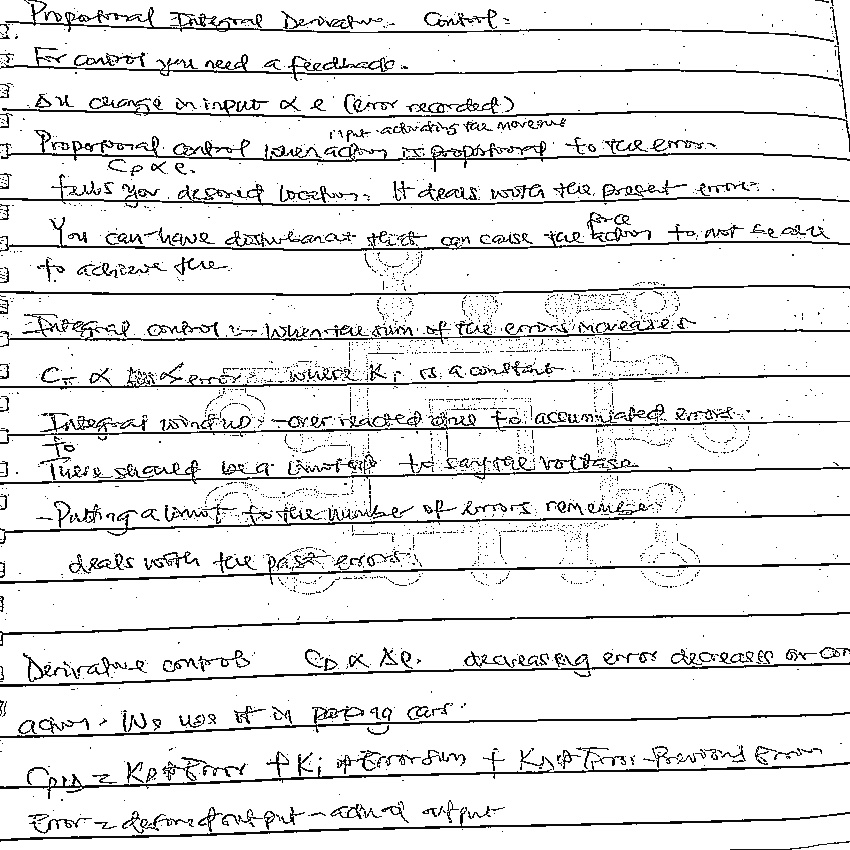 Proportional Integral Derivative Control:
For control you need a feedback.
Δu change in input ∝ e (error recorded)
input activating the movement
Proportional control when action is proportional to the error.
Cp ∝ e.
tells you desired location. It deals with the present error.
force
You can have disturbances that can cause the action to not be able
to achieve the
Integral control :- When the sum of the errors increases
C_I ∝ error where Ki is a constant
Integral windup - over reacted due to accumulated errors.
To
There should be a limit to say the voltage
- Putting a limit to the number of errors
deals with the past errors.
Derivative controls C_D ∝ Δe. decreasing error decreases or con
action. We use it in parking cars.
C_PID = Kp * Error + Ki * Errorsum + KD * Error - Previous Error
Error = desired output - actual output